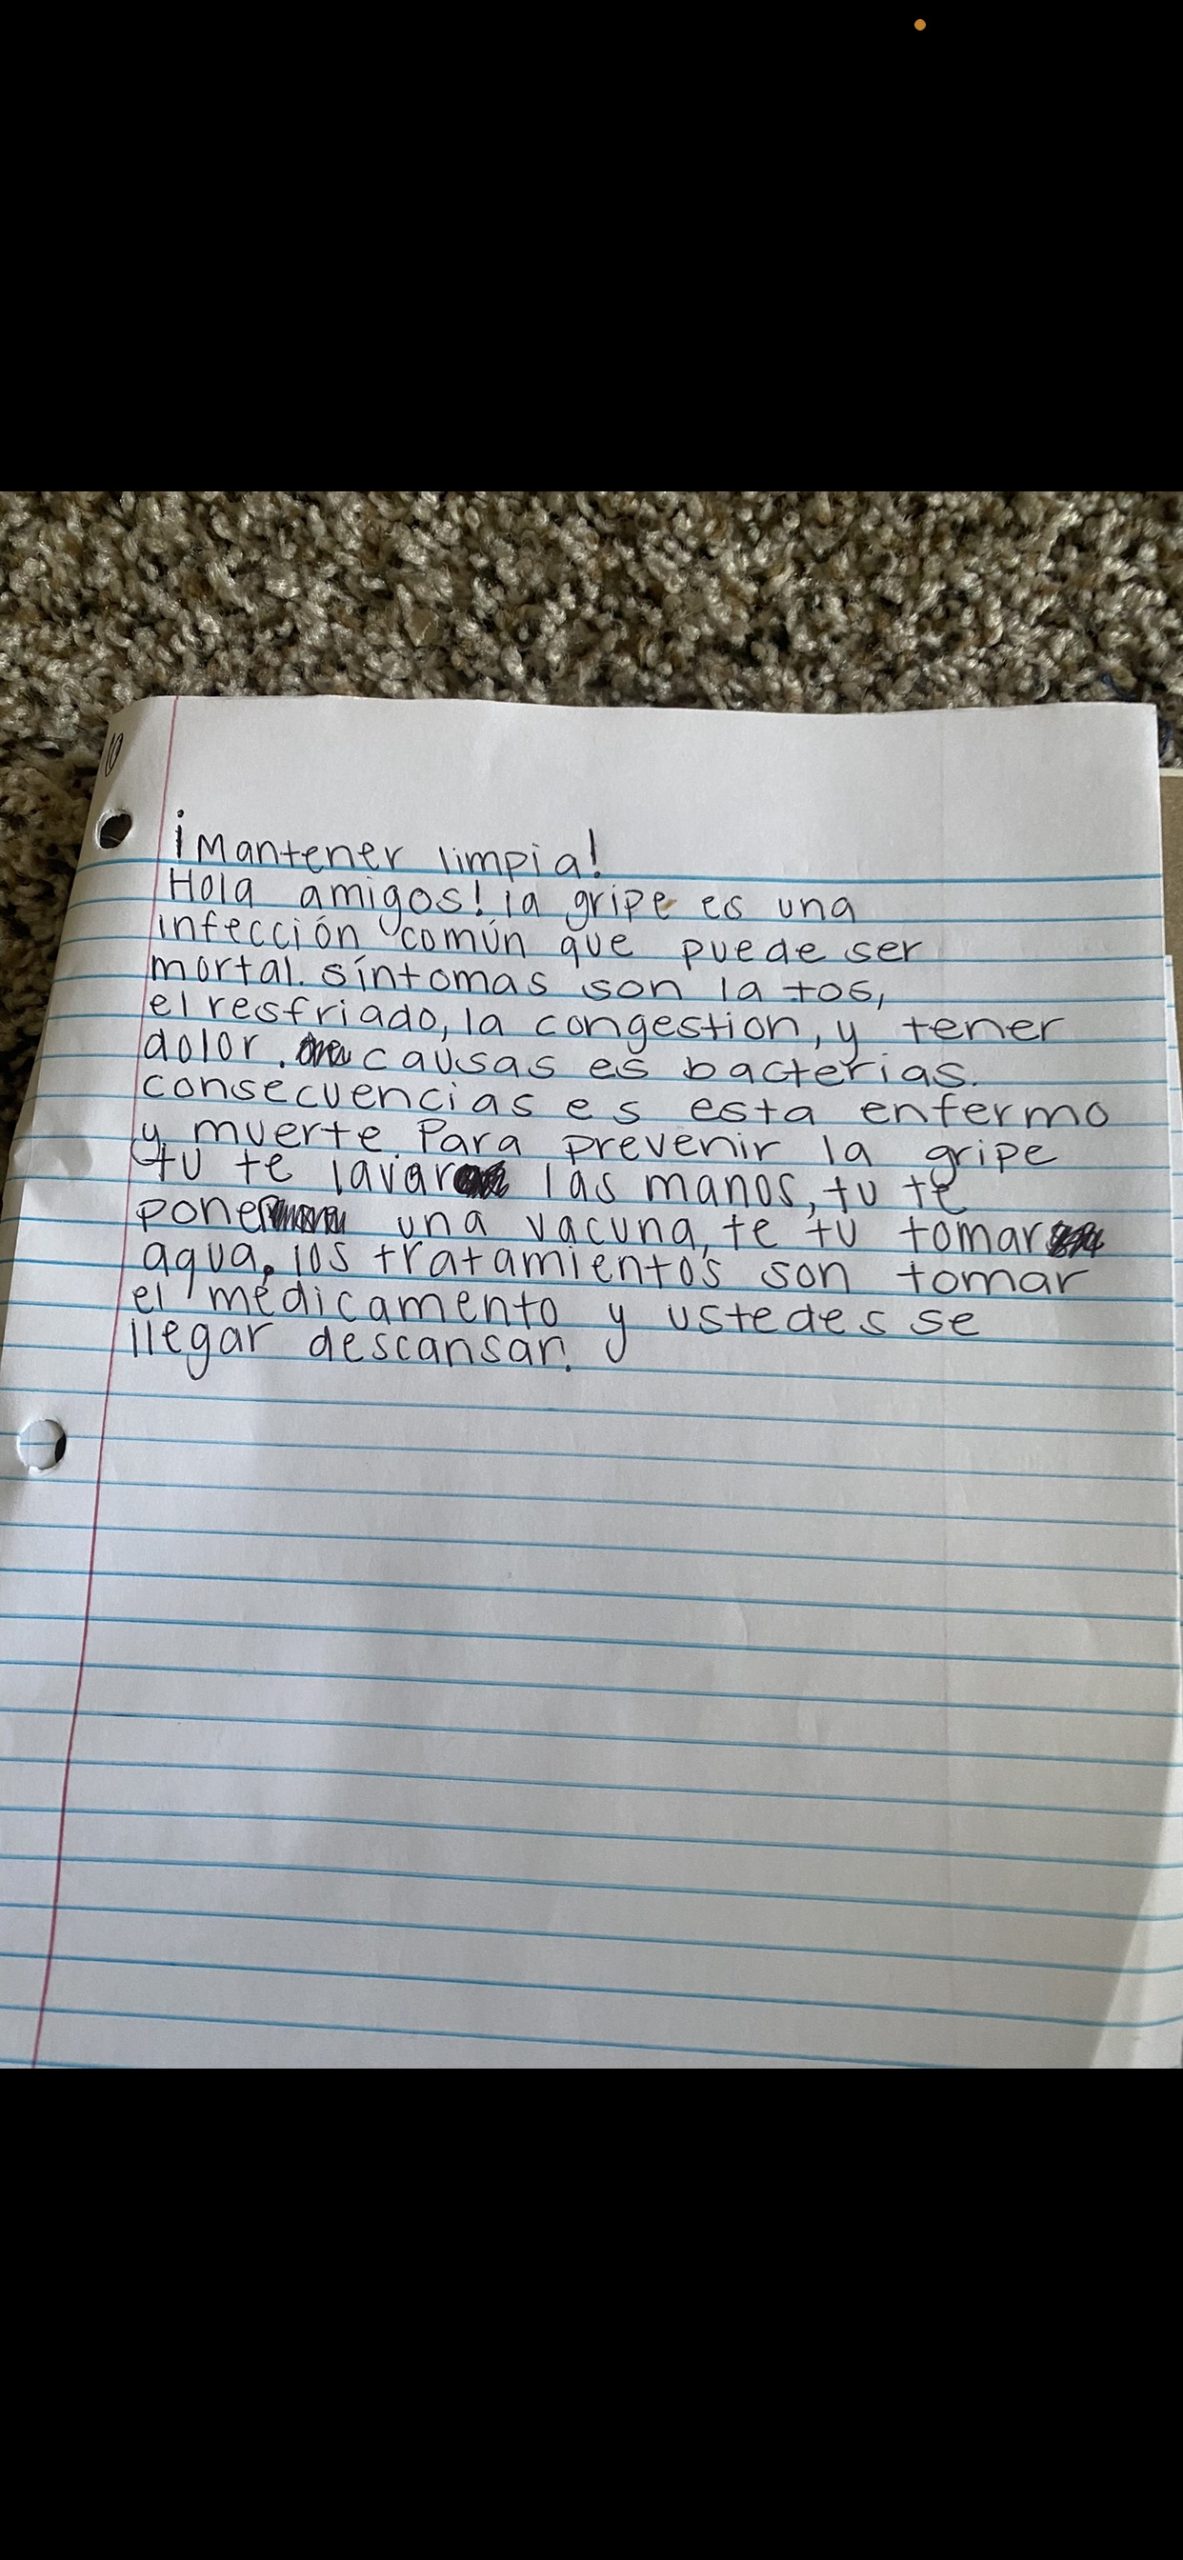 10
¡Mantener limpia!
Hola amigos! la gripe es una
infección común que puede ser
mortal. síntomas son la tos,
el resfriado, la congestion, y tener
dolor. causas es bacterias.
consecuencias es esta enfermo
y muerte. Para prevenir la gripe
tu te lavar las manos, tu te
poner una vacuna, te tu tomar
agua. los tratamientos son tomar
el medicamento y ustedes se
llegar descansar.